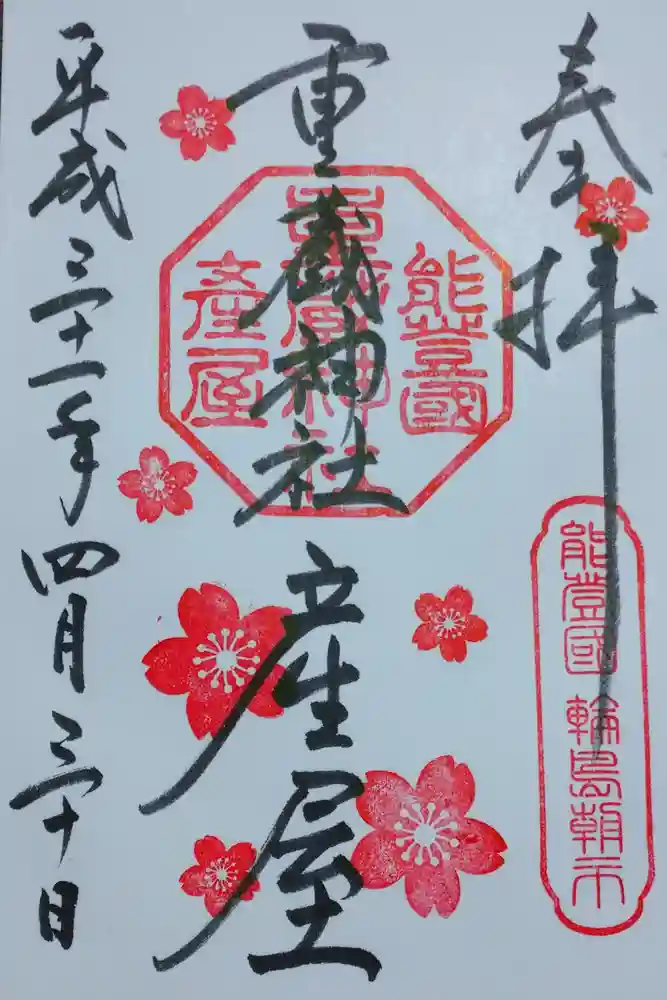 奉拝
能登國 輪島朝市
重蔵神社
能登國
重蔵神社
産屋
産屋
平成三十一年四月三十日